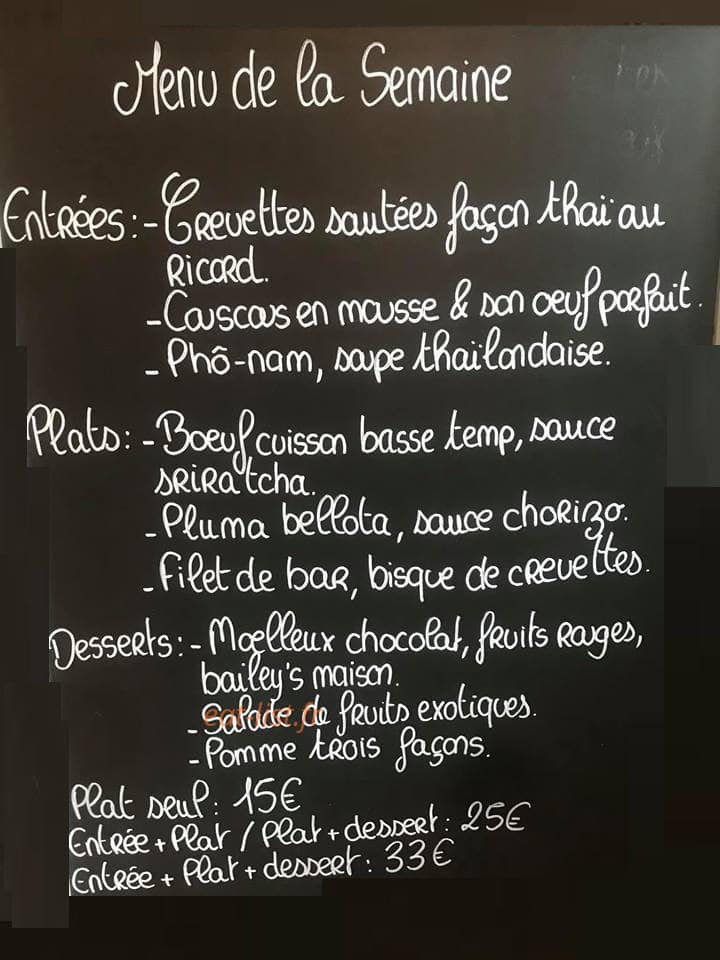 Menu de la Semaine
Entrées : - Crevettes sautées façon thaï au
Ricard.
- Couscous en mousse & son oeuf parfait.
- Phô-nam, soupe thaïlandaise.
Plats : - Boeuf cuisson basse temp, sauce
sriratcha.
- Pluma bellota, sauce chorizo.
- Filet de bar, bisque de crevettes.
Desserts : - Moelleux chocolat, fruits rouges,
bailey's maison.
- Salade de fruits exotiques.
- Pomme trois façons.
Plat seul : 15€
Entrée + Plat / Plat + dessert : 25€
Entrée + Plat + dessert : 33€